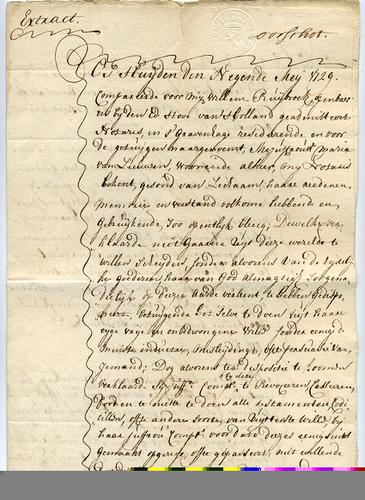 Extract.
voorschot.
Op huyden den Negende Mey 1729.
Compareerde voor mij Willem Ruijbroek, openbaar
en bij den Ed. Hove van Holland geadmitteert
Notaris, in s'Gravenhage resideerende en voor
de getuijgen naargenoemt, Mejuffrouw Maria
van Leeuwen, woonende alhier, mij Notaris
bekent, gesond van Lichaam, haare redenen
memorie en verstand volkome hebbende en
gebruijkende, zoo opentlijk bleeq, Dewelke ver
klaarde niet gaarne uijt deeze werelt te
willen scheijden, sonder alvorens van de tijdelij
ke goederen haar van God almagtig
op deeze aarde verleent, te hebben gedispo
neert, betuijgende het selve te doen uijt haare
eijge vrije en onbedwonge Wille, sonder eenige
inductie, misleijdinge, ofte persuasie van
jemand; Dog alvorens ter dispositie te koomen
verklaarde Compte. te Revoceeren, Casseeren,
Dood en te niete te doen alle testamenten Codi
cillen, ofte andere soorte van Uijtterste Wille, bij
haar Juffrouw Compte. voor dato deezes eenigsints
gemaakt ofte gepasseert, niet willende